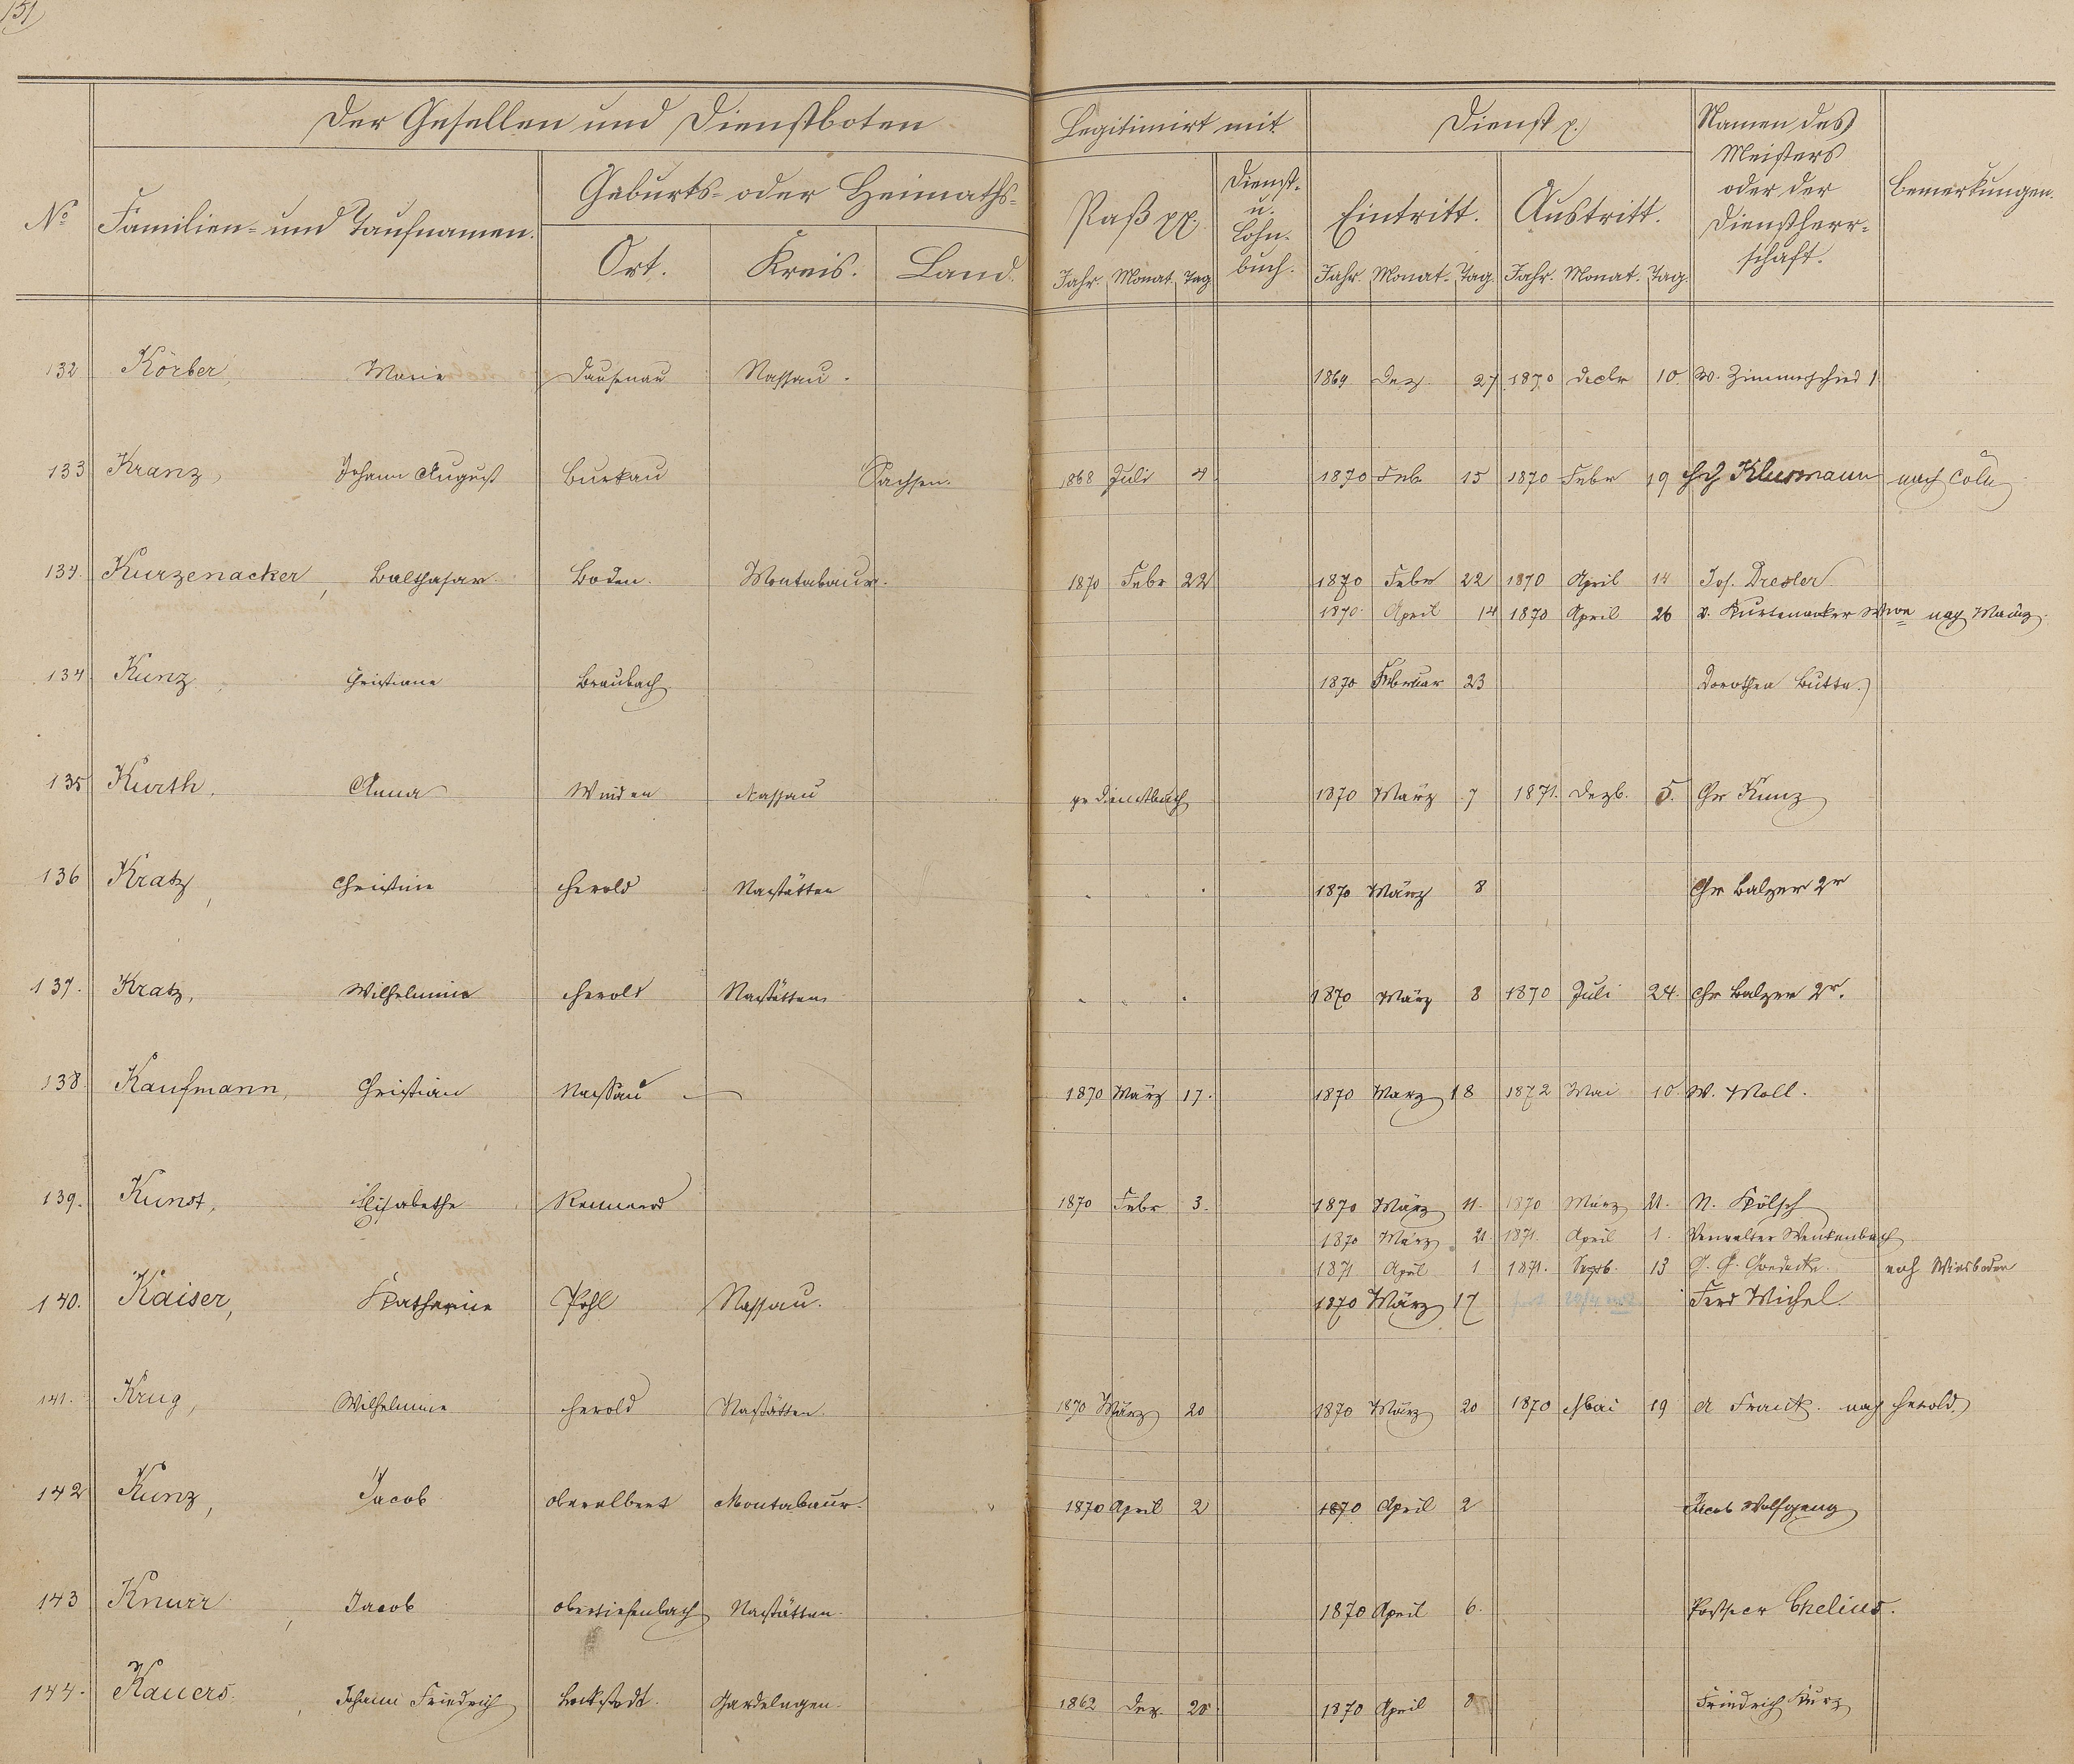 151
Der Gesellen und Dienstboten
Legitimirt mit
Dienst p.
Namen des
Meisters
oder der
Dienstherr-
schaft.
Bemerkungen.
No
Familien- und Taufnamen.
Geburts- oder Heimaths-
Ort. Kreis. Land.
Paß pp.
Dienst-
u.
Lohn-
buch.
Eintritt. Austritt.
Jahr. Monat Tag Jahr. Monat. Tag. Jahr. Monat. Tag.
132 Körber, Marie Dausenau Nassau. 1869 Dez. 27 1870 Decbr 10. W. Zimmerschied 1.
133 Kranz, Johann August Burkau Sachsen. 1868 Juli 4 1870 Feb. 15 1870 Febr 19 Klusmann nach Cöln
134. Kurzenacker, Balthasar Boden. Montabaur. 1870 Febr 22 1870 Febr 22 1870 April 14 Jos. Dresler
1870. April 14 1870 April 26 v. Kurtenacker Wwe nach Mainz.
134 Kunz, Christiane Braubach 1870 Februar 23 Dorothea Butte.
135 Kurth. Anna Winden Nassau Dienstbuch 1870 März 7 1871. Dezb. 5. Chr Kunz
136 Kratz, Christine Herold Nastätten 1870 März 8 Chr Balzer 2r
137. Kratz, Wilhelmine Herold Nastätten 1870 März 8 1870 Juli 24. Chr Balzer 2r.
138. Kaufmann, Christian Nassau 1870 März 17. 1870 März 18 1872 Mai 10. W. Moll.
139. Kunst, Elisabethe Rennerod 1870 Febr 3. 1870 März 11. 1870 März 21. N. Kölsch
1870 März 21. 1871. April 1. Verwalter Wenkenbach
1871 April 1 1871. Septb. 13 Goedecke. nach Wiesbaden
140. Kaiser, Katharine Pohl Nassau. 1870 März 17 Ferd Michel.
141. Krug, Wilhelmine Herold Nastätten. 1870 März 20 1870 März 20 1870 Mai 19 A Franck. nach Herold.
142 Kunz, Jacob Oberelbert Montabaur. 1870 April 2 1870 April 2 Jacob Wolfgang
143 Knurr, Jacob Obertiefenbach Nastätten. 1870 April 6. Chelius.
144. Kauers, Johann Friedrich Bockstedt. Gardelegen. 1862 Dez. 20. 1870 April 8 Friedrich Kurz